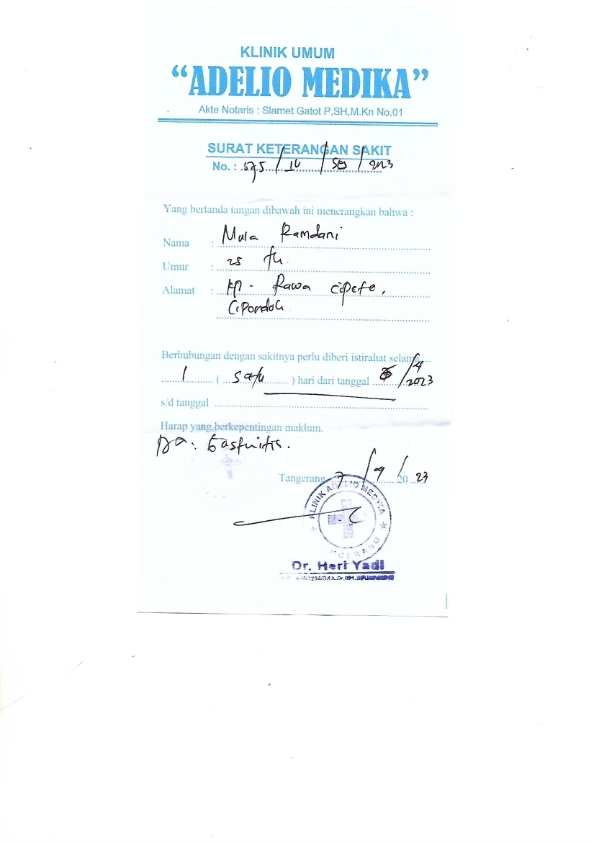 KLINIK UMUM
"ADELIO MEDIKA"
Akte Notaris : Slamet Gatot P,SH,M.Kn No.01
SURAT KETERANGAN SAKIT
No. : 675 / / / 2023
Yang bertanda tangan dibawah ini menerangkan bahwa :
Nama : Mula Ramdani
Umur : 25 th
Alamat : KP. Rawa Cipete,
Cipondoh
Berhubungan dengan sakitnya perlu diberi istirahat selama
1 ( satu ) hari dari tanggal /9/2023
s/d tanggal
Harap yang berkepentingan maklum.
Gastritis.
Tangerang 7/9/20 23
KLINIK ADELIO MEDIKA
Dr. Heri Yadi